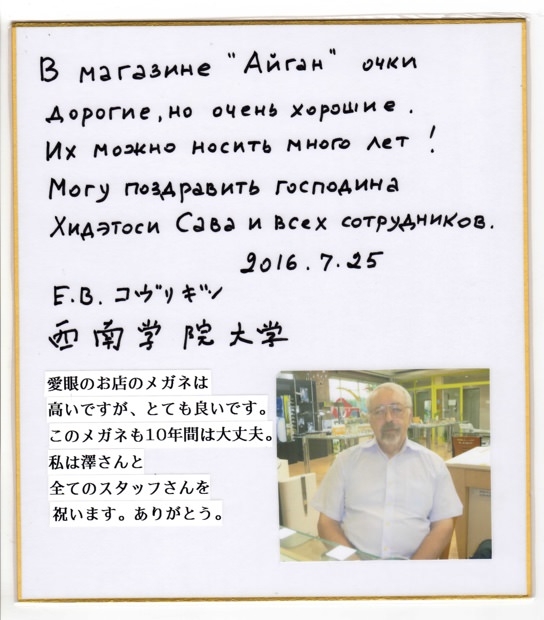 В магазине "Айган" очки
дорогие, но очень хорошие.
Их можно носить много лет!
Могу поздравить господина
Хидэтоси Сава и всех сотрудников.
2016.7.25
E.B. コヴリギン
西南学院大学
愛眼のお店のメガネは
高いですが、とても良いです。
このメガネも10年間は大丈夫。
私は澤さんと
全てのスタッフさんを
祝います。ありがとう。